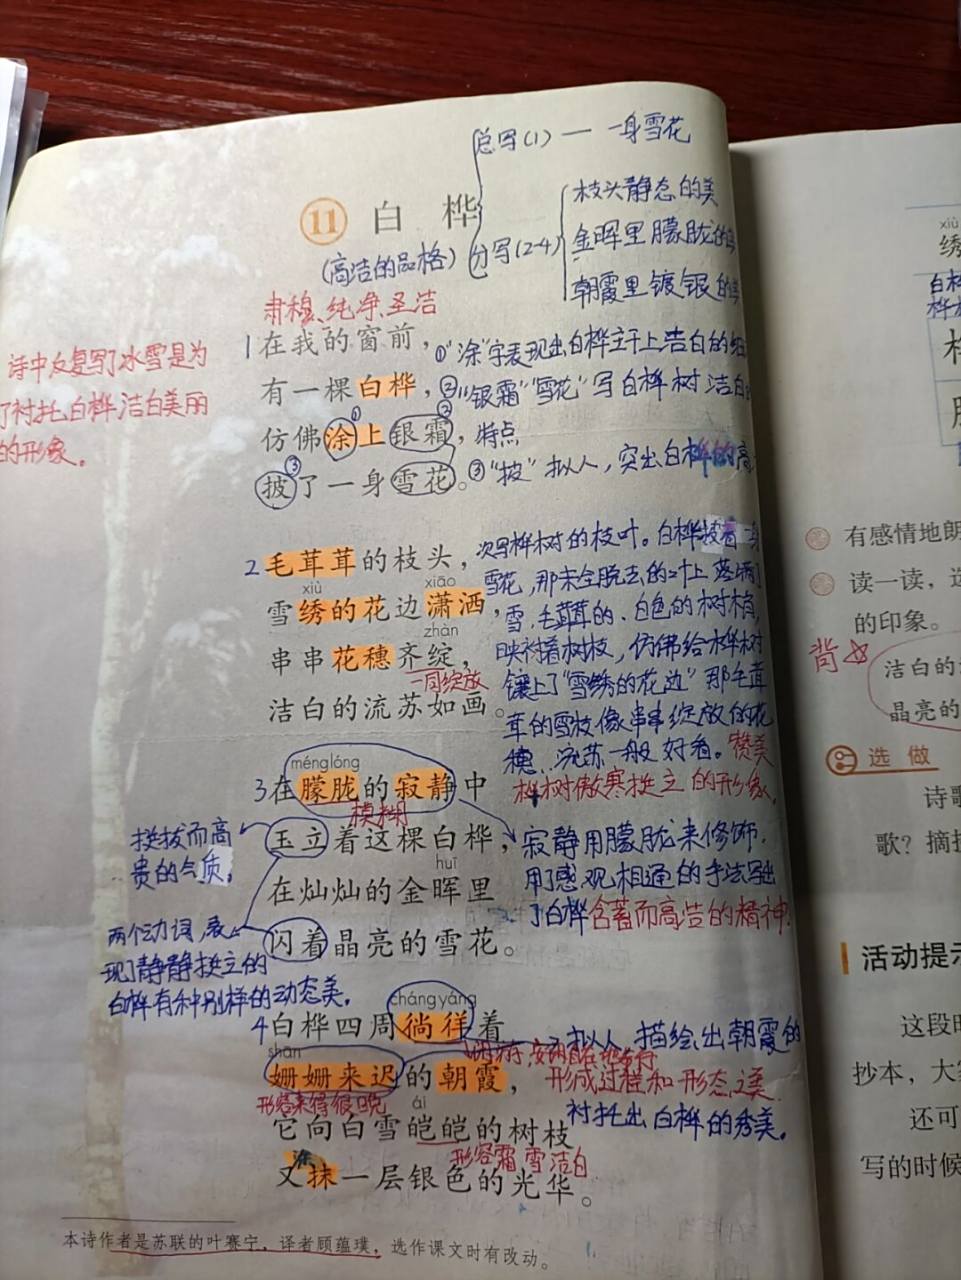 总写(1) — 一身雪花
11 白桦
(高洁的品格)
分写(2-4)
枝头静态的美
金晖里朦胧的
朝霞里镀银的
肃穆、纯净、圣洁
诗中反复写了冰雪是为
了衬托白桦洁白美丽
的形象。
1 在我的窗前，
有一棵白桦，
仿佛涂上银霜，
披了一身雪花。
①"涂"字表现出白桦立于上洁白的
②"银霜""雪花"写白桦树洁白的
特点
③"披"拟人，突出白桦的高
2 毛茸茸的枝头，
xiù xiāo
雪绣的花边潇洒，
zhàn
串串花穗齐绽，
一同绽放
洁白的流苏如画。
次写桦树的枝叶。白桦披着一身
雪花，那未全脱去的叶上落满了
雪，毛茸茸的、白色的树梢，
映衬着树枝，仿佛给桦树
镶上了"雪绣的花边"那毛茸
茸的雪枝像串串绽放的花
穗、流苏一般好看。赞美
桦树傲寒挺立的形象。
ménglóng
3 在朦胧的寂静中
模糊
玉立着这棵白桦，
huī
在灿灿的金晖里
闪着晶亮的雪花。
挺拔而高
贵的气质。
两个动词，表
现了静静挺立的
白桦有种别样的动态美。
寂静用朦胧来修饰，
用了感观相通的手法写出
了白桦含蓄而高洁的精神。
chángyáng
4 白桦四周徜徉着
shān
姗姗来迟的朝霞，
形容来得很晚
ái
它向白雪皑皑的树枝
形容霜雪洁白
涂
又抹一层银色的光华。
拟人，描绘出朝霞的
形成过程和形态之美
衬托出白桦的秀美。
本诗作者是苏联的叶赛宁，译者顾蕴璞，选作课文时有改动。
xiù
绣
白桦
有感情地朗
读一读，
的印象。
背☆
洁白的
晶亮的
选做
诗歌
歌？摘
活动提示
这段时
抄本，大家
还可
写的时候